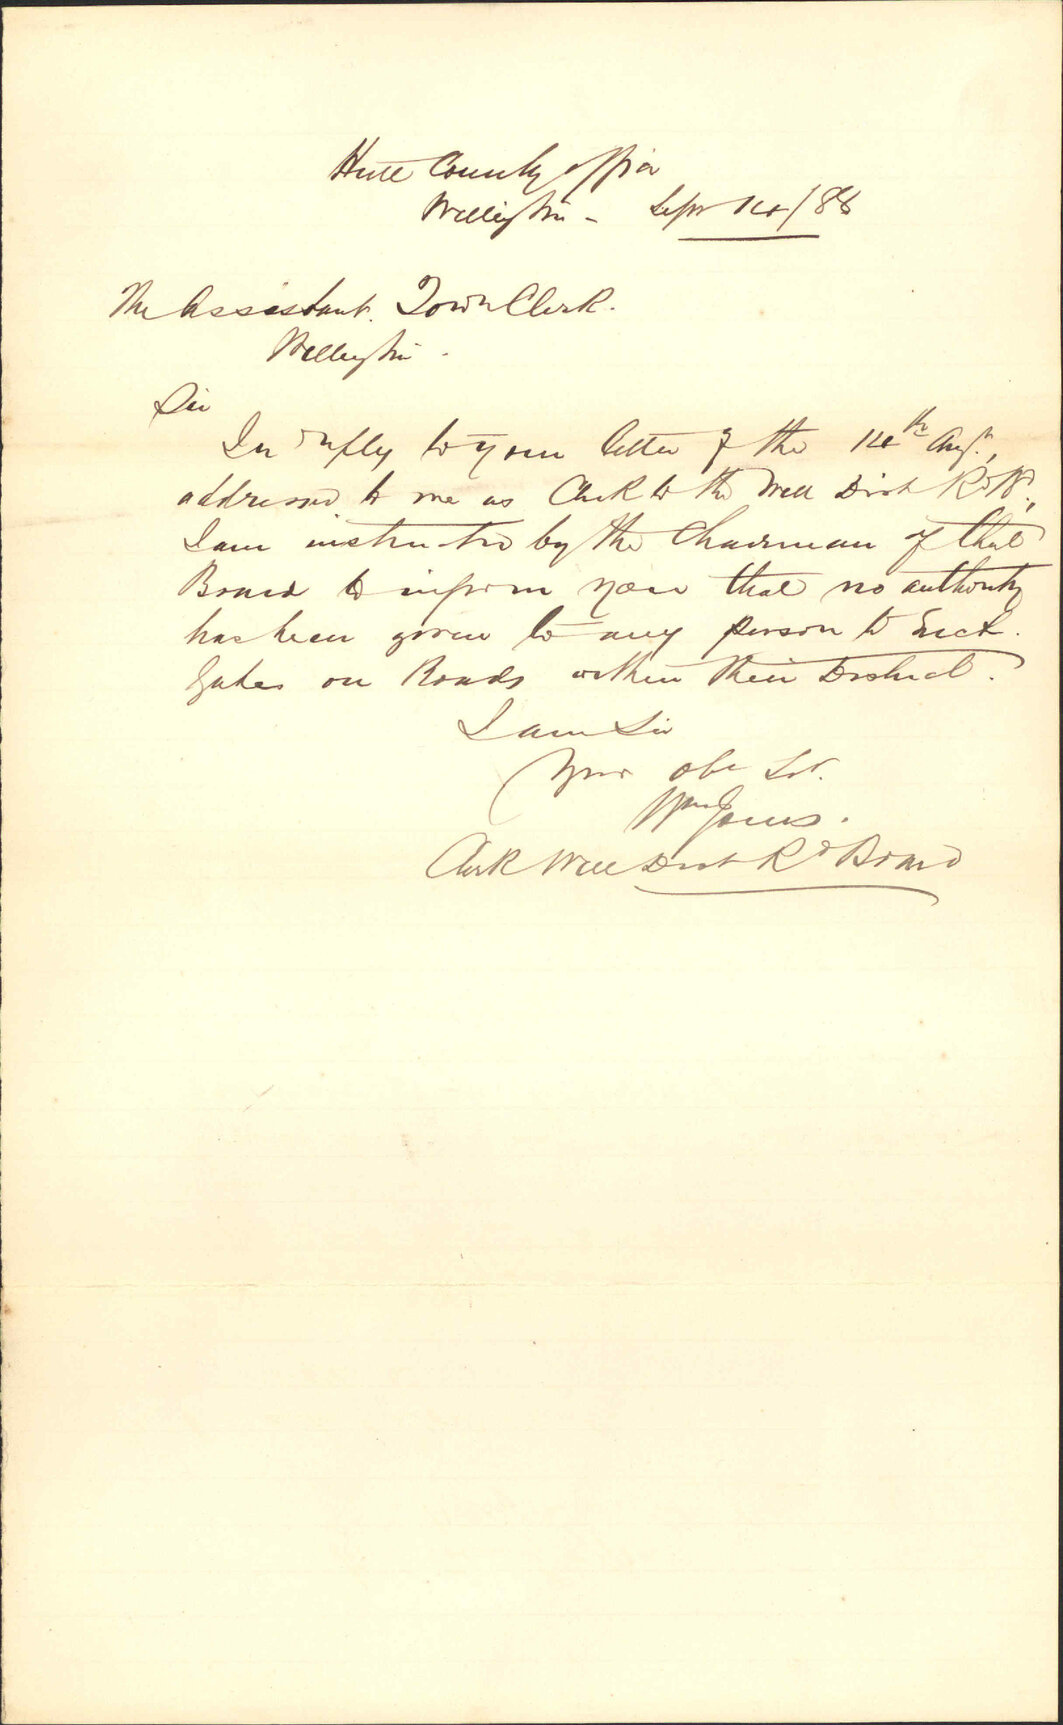 Hutt County Office
Wellington - Sepr 14/88
The Assistant Town Clerk.
Wellington.
Sir
In reply to your letter of the 14th Augt.,
addressed to me as Clerk to the Well Dist Rd Bd.,
I am instructed by the Chairman of that
Board to inform you that no authority
has been given to any person to Erect
Gates on Roads within their District.
I am Sir
Your obt Svt.
Wm Jones.
Clerk Well Dist Rd Board